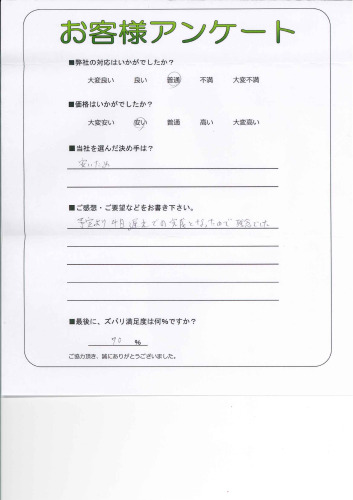 お客様アンケート
■弊社の対応はいかがでしたか？
大変良い 良い 普通 不満 大変不満
■価格はいかがでしたか？
大変安い 安い 普通 高い 大変高い
■当社を選んだ決め手は？
安いため
■ご感想・ご要望などをお書き下さい。
予定より 遅 での となったので
■最後に、ズバリ満足度は何%ですか？
70 %
ご協力頂き、誠にありがとうございました。